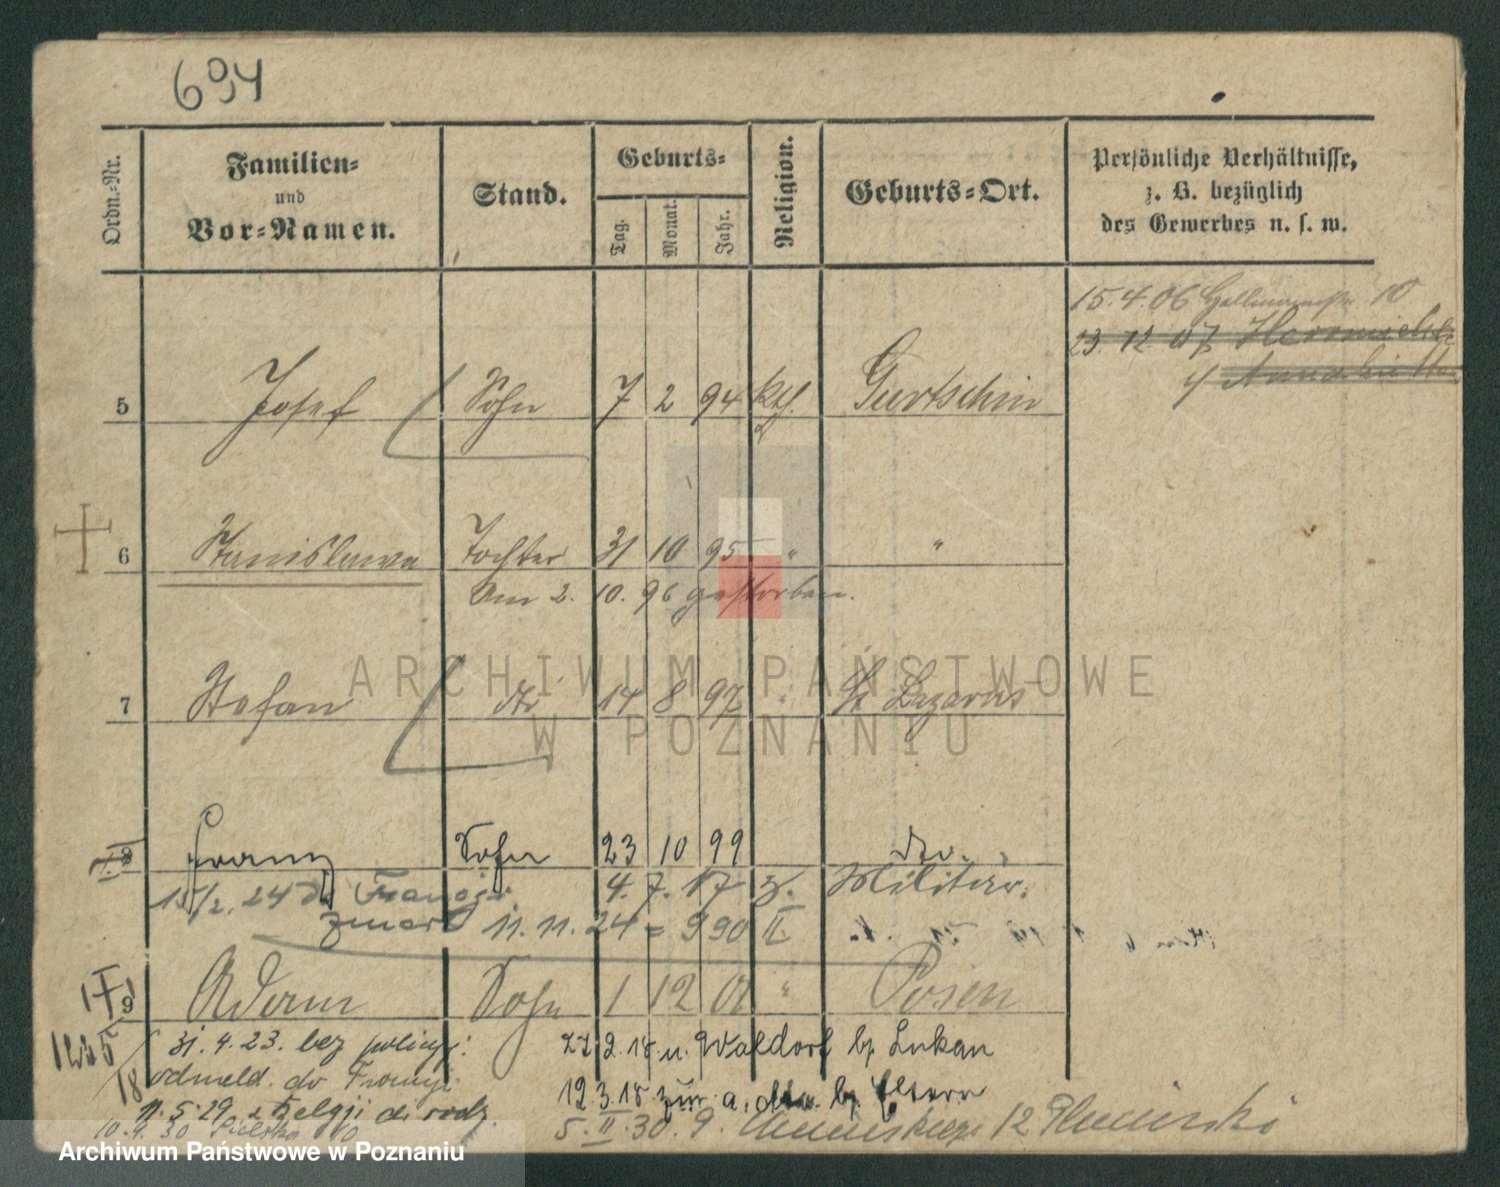 694
Ordn.-Nr.
Familien-
und
Vor-Namen.
Stand.
Geburts-
Tag.
Monat.
Jahr.
Religion.
Geburts-Ort.
Persönliche Verhältnisse,
z. B. bezüglich
des Gewerbes u. s. w.
15.4.06 10
23. 12 07
5 Josef Sohn 7 2 94 kth. Gurtschin
6 Stanislawa Tochter 31 10 95 " "
Am 2. 10. 96 gestorben.
7 Stefan do 14 8 97 " St Lazarus
8 Franz Sohn 23 10 99 do.
15/2. 24 4. 7. 17 z. Militär.
zmarł 11. 11. 24 = 990 II.
9 Adam Sohn 1 12 01 " Posen
31. 4. 23. bez policyj: 27 2. 18 u. Waldorf b/ Lukan
odmeld. do Francyi 12.3.18 zur. a. b/ Eltern
11. 5. 29. z Belgji do rodz.
10. 4. 30 10 5. II. 30. 9. 12
ARCHIWUM PAŃSTWOWE
W POZNANIU
Archiwum Państwowe w Poznaniu